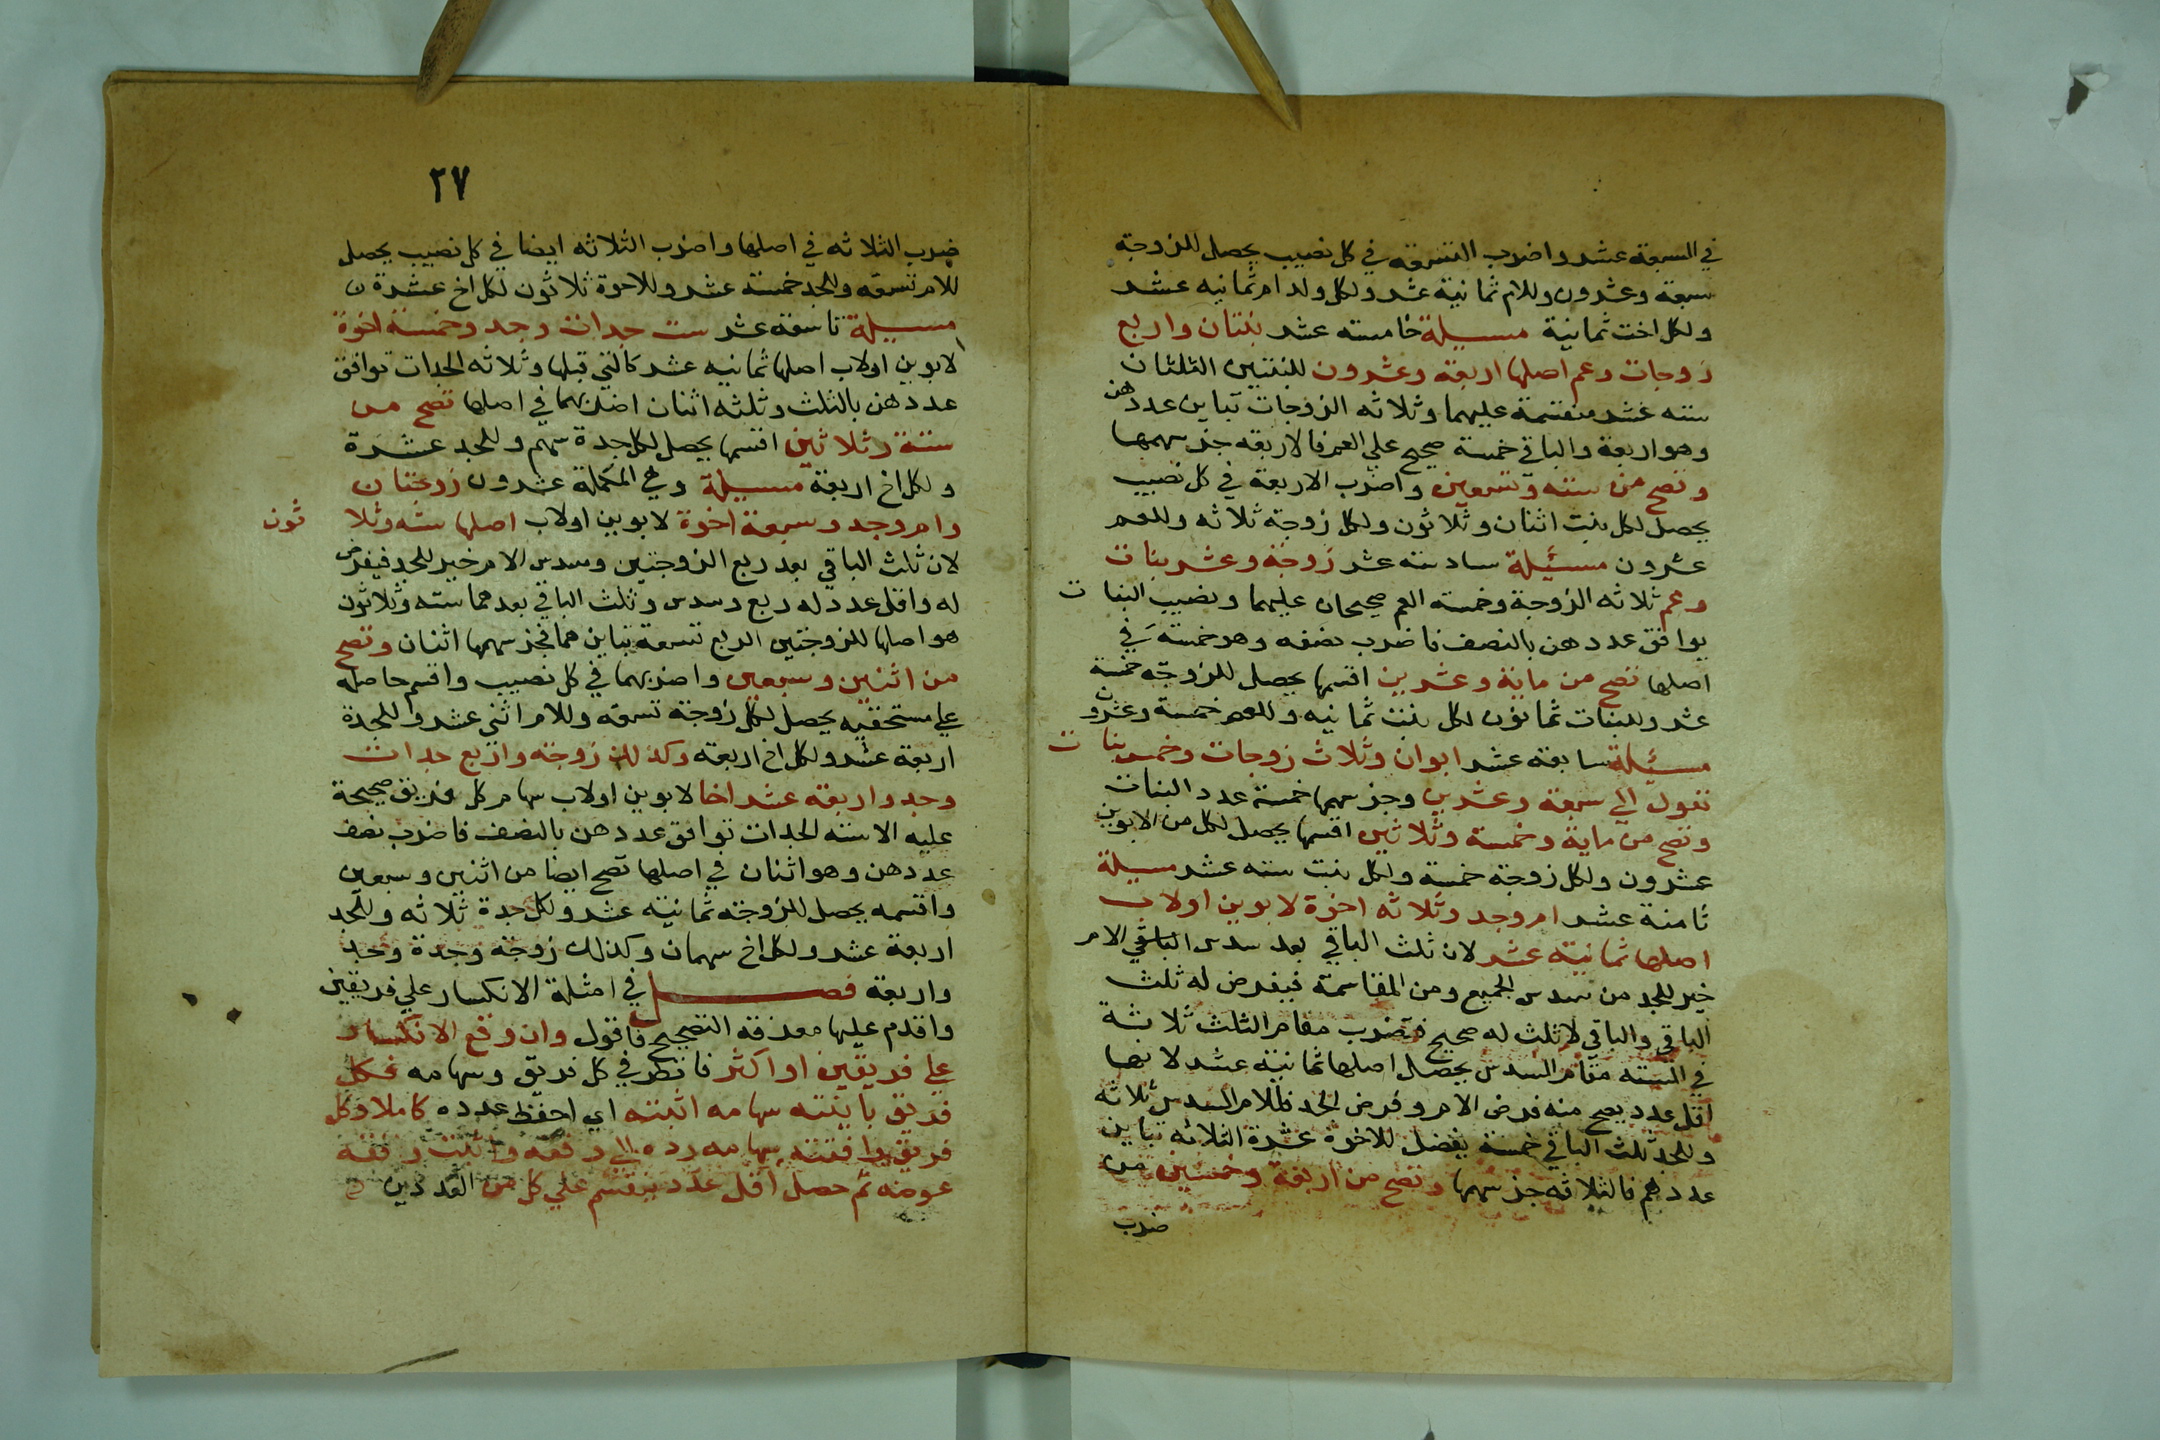 في السبعة عشر واضرب التسعة في كل نصيب يحصل للزوجة
سبعة وعشرون وللام ثمانية عشر ولكل ولد ام ثمانيه عشر
ولكل اخت ثمانية مسيلة خامسه عشر بنتان واربع
زوجات وعم اصلها اربعة وعشرون للبنتين الثلثان
سته عشر منقسمة عليهما وثلاثه الزوجات تباين عددهن
وهو اربعة والباقي خمسة صحيح علي العم فالاربعه جز سهمها
وتصح من سته وتسعين واضرب الاربعة في كل نصيب
يحصل لكل بنت اثنان وثلاثون ولكل زوجة ثلاثه وللعم
عشرون مسئيلة سادسه عشر زوجة وعشر بنات
وعم ثلاثه الزوجة وخمسه العم صحيحان عليهما ونصيب البنات
يوافق عددهن بالنصف فاضرب نصفه وهو خمسة في
اصلها تصح من ماية وعشرين اقسمها يحصل للزوجه خمسة
عشر وللبنات ثمانون لكل بنت ثمانيه وللعم خمسة وعشرون
مسئيلة سابعه عشر ابوان وثلاث زوجات وخمس بنات
تعول الي سبعة وعشرين وجز سهمها خمسة عدد البنات
وتصح من ماية وخمسة وثلاثين اقسمها يحصل لكل من الابوين
عشرون ولكل زوجة خمسة ولكل بنت سته عشر مسيلة
ثامنة عشر ام وجد وثلاثه اخوة لابوين اولاب
اصلها ثمانيه عشر لان ثلث الباقي بعد سدس الباقي الام
خير للجد من سدس الجميع ومن المقاسمة فيفرض له ثلث
الباقي والباقي لا ثلث له صحيح فتضرب مقام الثلث ثلاثة
في الستة مقام السدس يحصل اصلها ثمانية عشر لانها
اقل عدد يصح منه فرض الام وفرض الجد فللام السدس ثلاثه
وللجد ثلث الباقي خمسة يفضل للاخوة عشرة الثلاثه تباين
عددهم فالثلاثه جز سهمها وتصح من اربعة وخمسين من
ضرب
٢٧
ضرب الثلاثه في اصلها واضرب الثلاثه ايضا في كل نصيب يحصل
للام تسعه وللجد خمسة عشر وللاخوة ثلاثون لكل اخ عشرة
مسيلة تاسعة عشر ست جدات وجد وخمسة اخوة
لابوين اولاب اصلها ثمانيه عشر كالتي قبلها وثلاثه الجدات توافق
عددهن بالثلث وثلثه اثنان اضربهما في اصلها تصح من
ستة وثلاثين اقسمها يحصل لكل جدة سهم وللجد عشرة
ولكل اخ اربعة مسيلة وهي المكملة عشرون زوجتان
وام وجد وسبعة اخوة لابوين اولاب اصلها سته وثلاثون
لان ثلث الباقي بعد ربع الزوجتين وسدس الام خير للجد فيفرض
له واقل عدد له ربع وسدس وثلث الباقي بعدهما سته وثلاثون
هو اصلها للزوجتين الربع تسعة تباينهما فجز سهمها اثنان وتصح
من اثنين وسبعين واضربهما في كل نصيب واقسم حاصله
علي مستحقيه يحصل لكل زوجة تسعه وللام اثني عشر وللجدة
اربعة عشر ولكل اخ اربعة وكذلك زوجة واربع جدات
وجد واربعة عشر اخا لابوين اولاب سهام كل فريق صحيحة
عليه الاسته الجدات توافق عددهن بالنصف فاضرب نصف
عددهن وهو اثنان في اصلها تصح ايضا من اثنين وسبعين
واقسمه يحصل للزوجة ثمانيه عشر ولكل جدة ثلاثه وللجد
اربعة عشر ولكل اخ سهمان وكذلك زوجة وجدة وجد
واربعة فصل في امثلة الانكسار علي فريقين
واقدم عليها معرفة التصحيح فاقول وان وقع الانكسار
علي فريقين او اكثر فانظر في كل فريق وسهامه فكل
فريق باينته سهامه اثبته اي احفظ عدده كاملا وكل
فريق وافقته سهامه رده الي وفقه واثبت وفقه
عوضه ثم حصل اقل عدد ينقسم علي كل من العددين